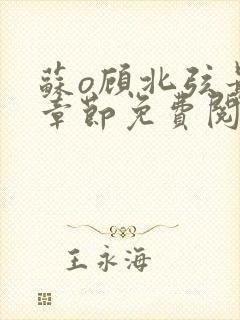 蘇o顾北弦
章節免費閱
王永海